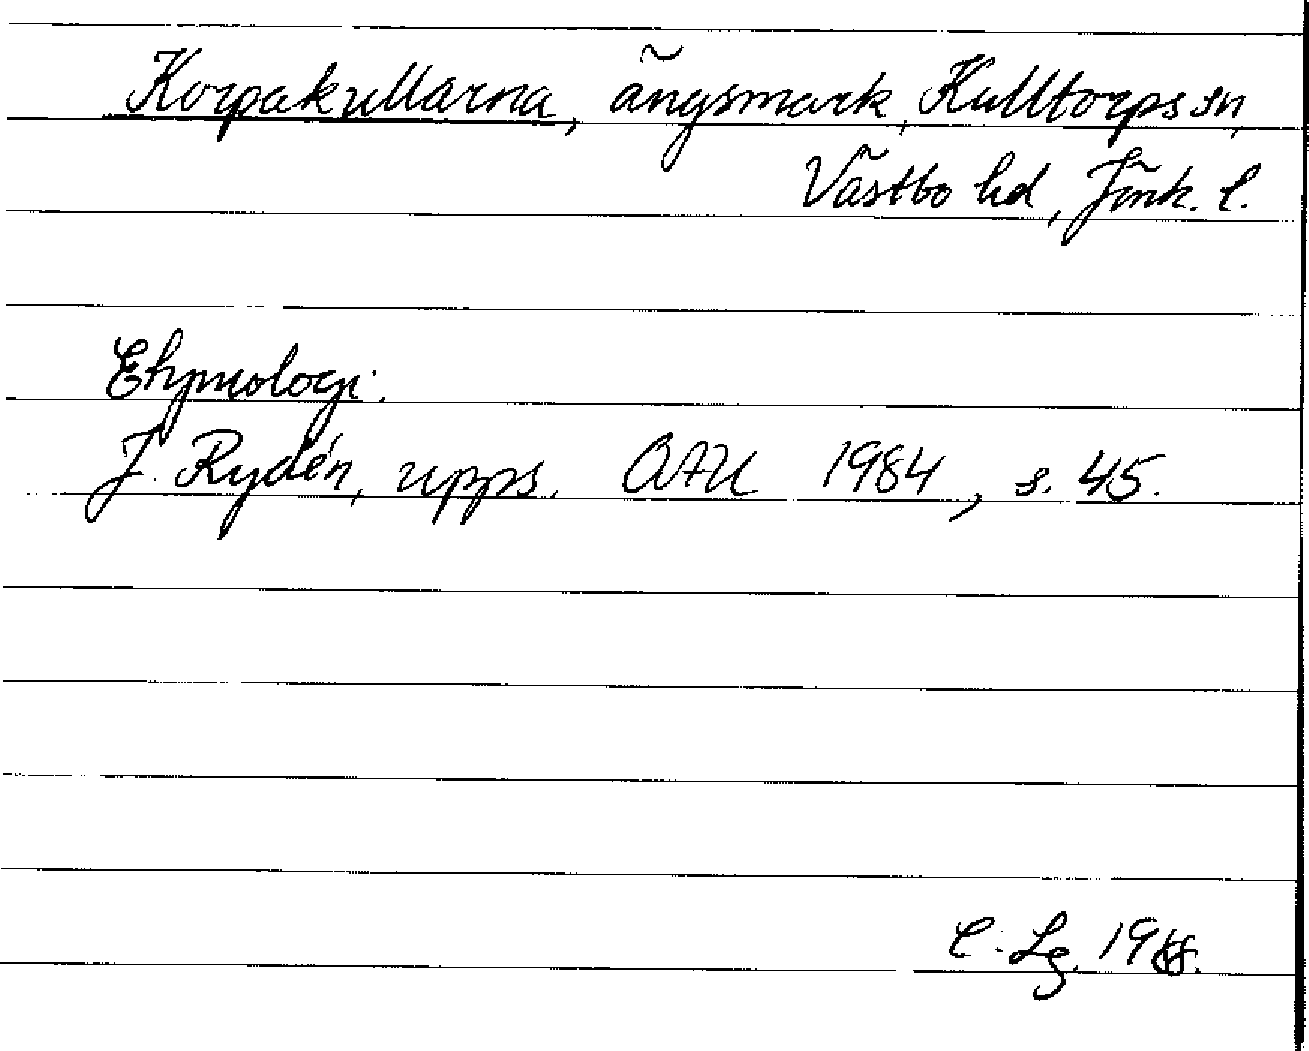 Korpakullarna, ängsmark, Kulltorps sn,
Västbo hd, Jönk. l.
Etymologi:
J. Rydén, upps. OAU 1984, s. 45.
C. Lg.